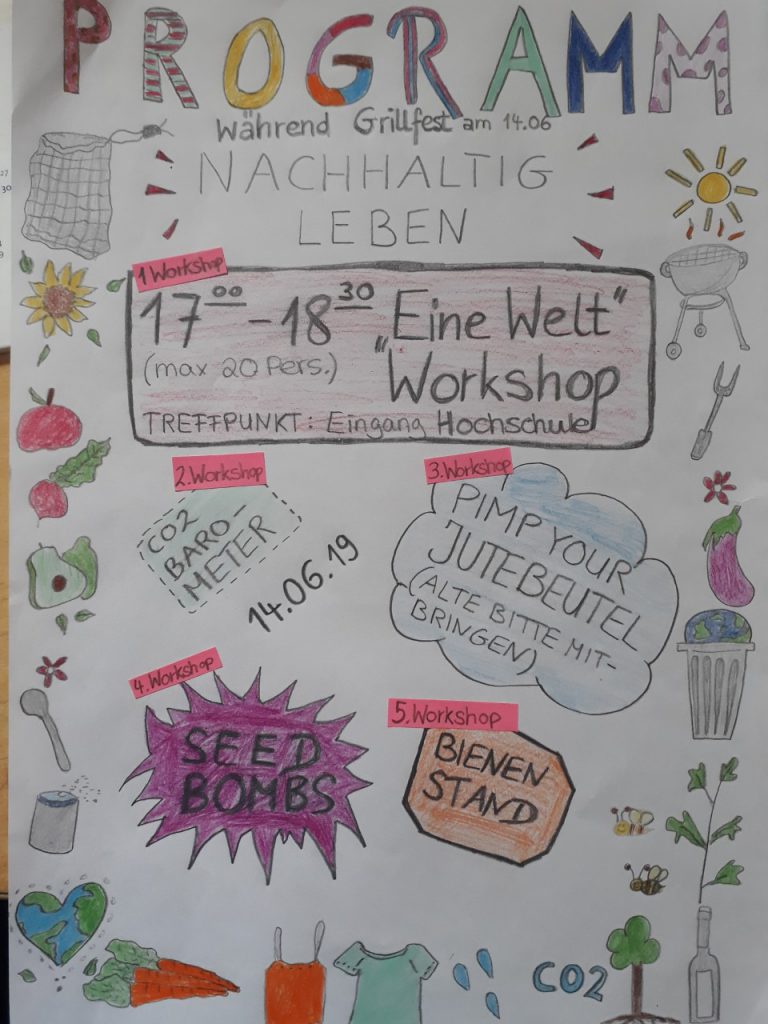 PROGRAMM
Während Grillfest am 14.06
NACHHALTIG
LEBEN
1 Workshop
17 00 - 18 30 „Eine Welt"
(max 20 Pers.) „Workshop
TREFFPUNKT: Eingang Hochschule
2. Workshop
CO2
BARO-
METER
14.06.19
3. Workshop
PIMP YOUR
JUTEBEUTEL
(ALTE BITTE MIT-
BRINGEN)
4. Workshop
SEED
BOMBS
5. Workshop
BIENEN
STAND
CO2